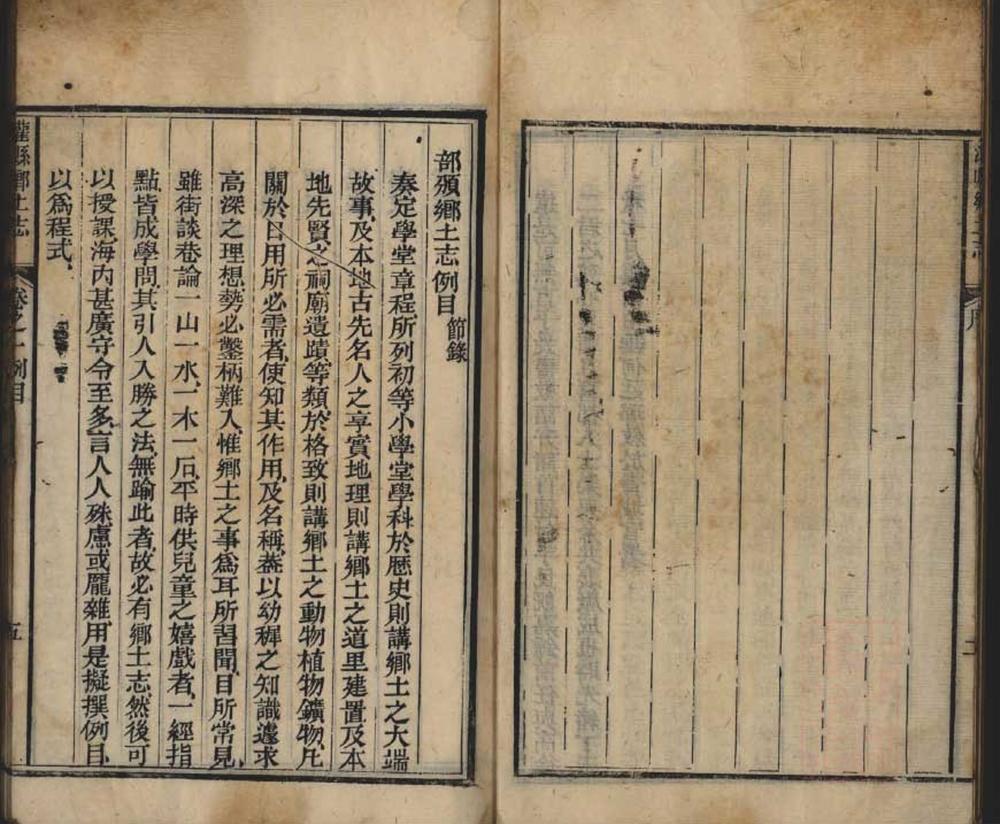 部頒鄉土志例目 節錄
奏定學堂章程所列初等小學堂學科於歷史則講鄉土之大端
故事及本地古先名人之享實地理則講鄉土之道里建置及本
地先賢之祠廟遺蹟等類於格致則講鄉土之動物植物鑛物凡
關於日用所必需者使知其作用及名稱葢以幼穉之知識遽求
高深之理想勢必鑿柄難入惟鄉土之事爲耳所習聞目所常見
雖街談巷論一山一水一木一石平時供兒童之嬉戲者一經指
點皆成學問其引人入勝之法無踰此者故必有鄉土志然後可
以授課海內甚廣守令至多言人人殊慮或龐雜用是擬撰例目
以爲程式
灌縣鄉土志 卷之一 例目 五